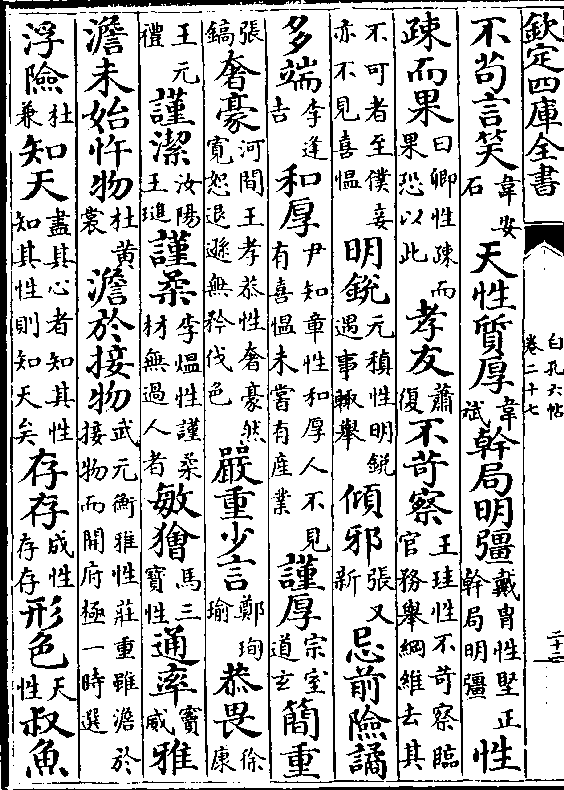 欽定四庫全書
白孔六帖
卷二十七
不苟言笑韋安石天性質厚韋斌幹局明彊戴胄性堅正幹局明彊性
疎而果曰卿性疎而果恐以此孝友蕭復不苛察王珪性不苛察臨官務舉綱維去其
不可者至僕妾亦不見喜愠明銳元稹性明銳遇事輒舉傾邪張又新忌前險譎
多端李逢吉和厚尹知章性和厚人不見有喜愠未嘗有産業謹厚宗室道玄簡重
張鎬奢豪河間王孝恭性奢豪然寛恕退遜無矜伐色嚴重少言鄭珣瑜恭畏徐康
王元禮謹潔汝陽王璡謹柔李熅性謹柔材無過人者敏獪馬三寶性通率竇威雅
澹未始忤物杜黄裳澹於接物武元衡雅性莊重雖澹於接物而開府極一時選
浮險杜兼知天盡其心者知其性知其性則知天矣存存成性存存形色天性叔魚